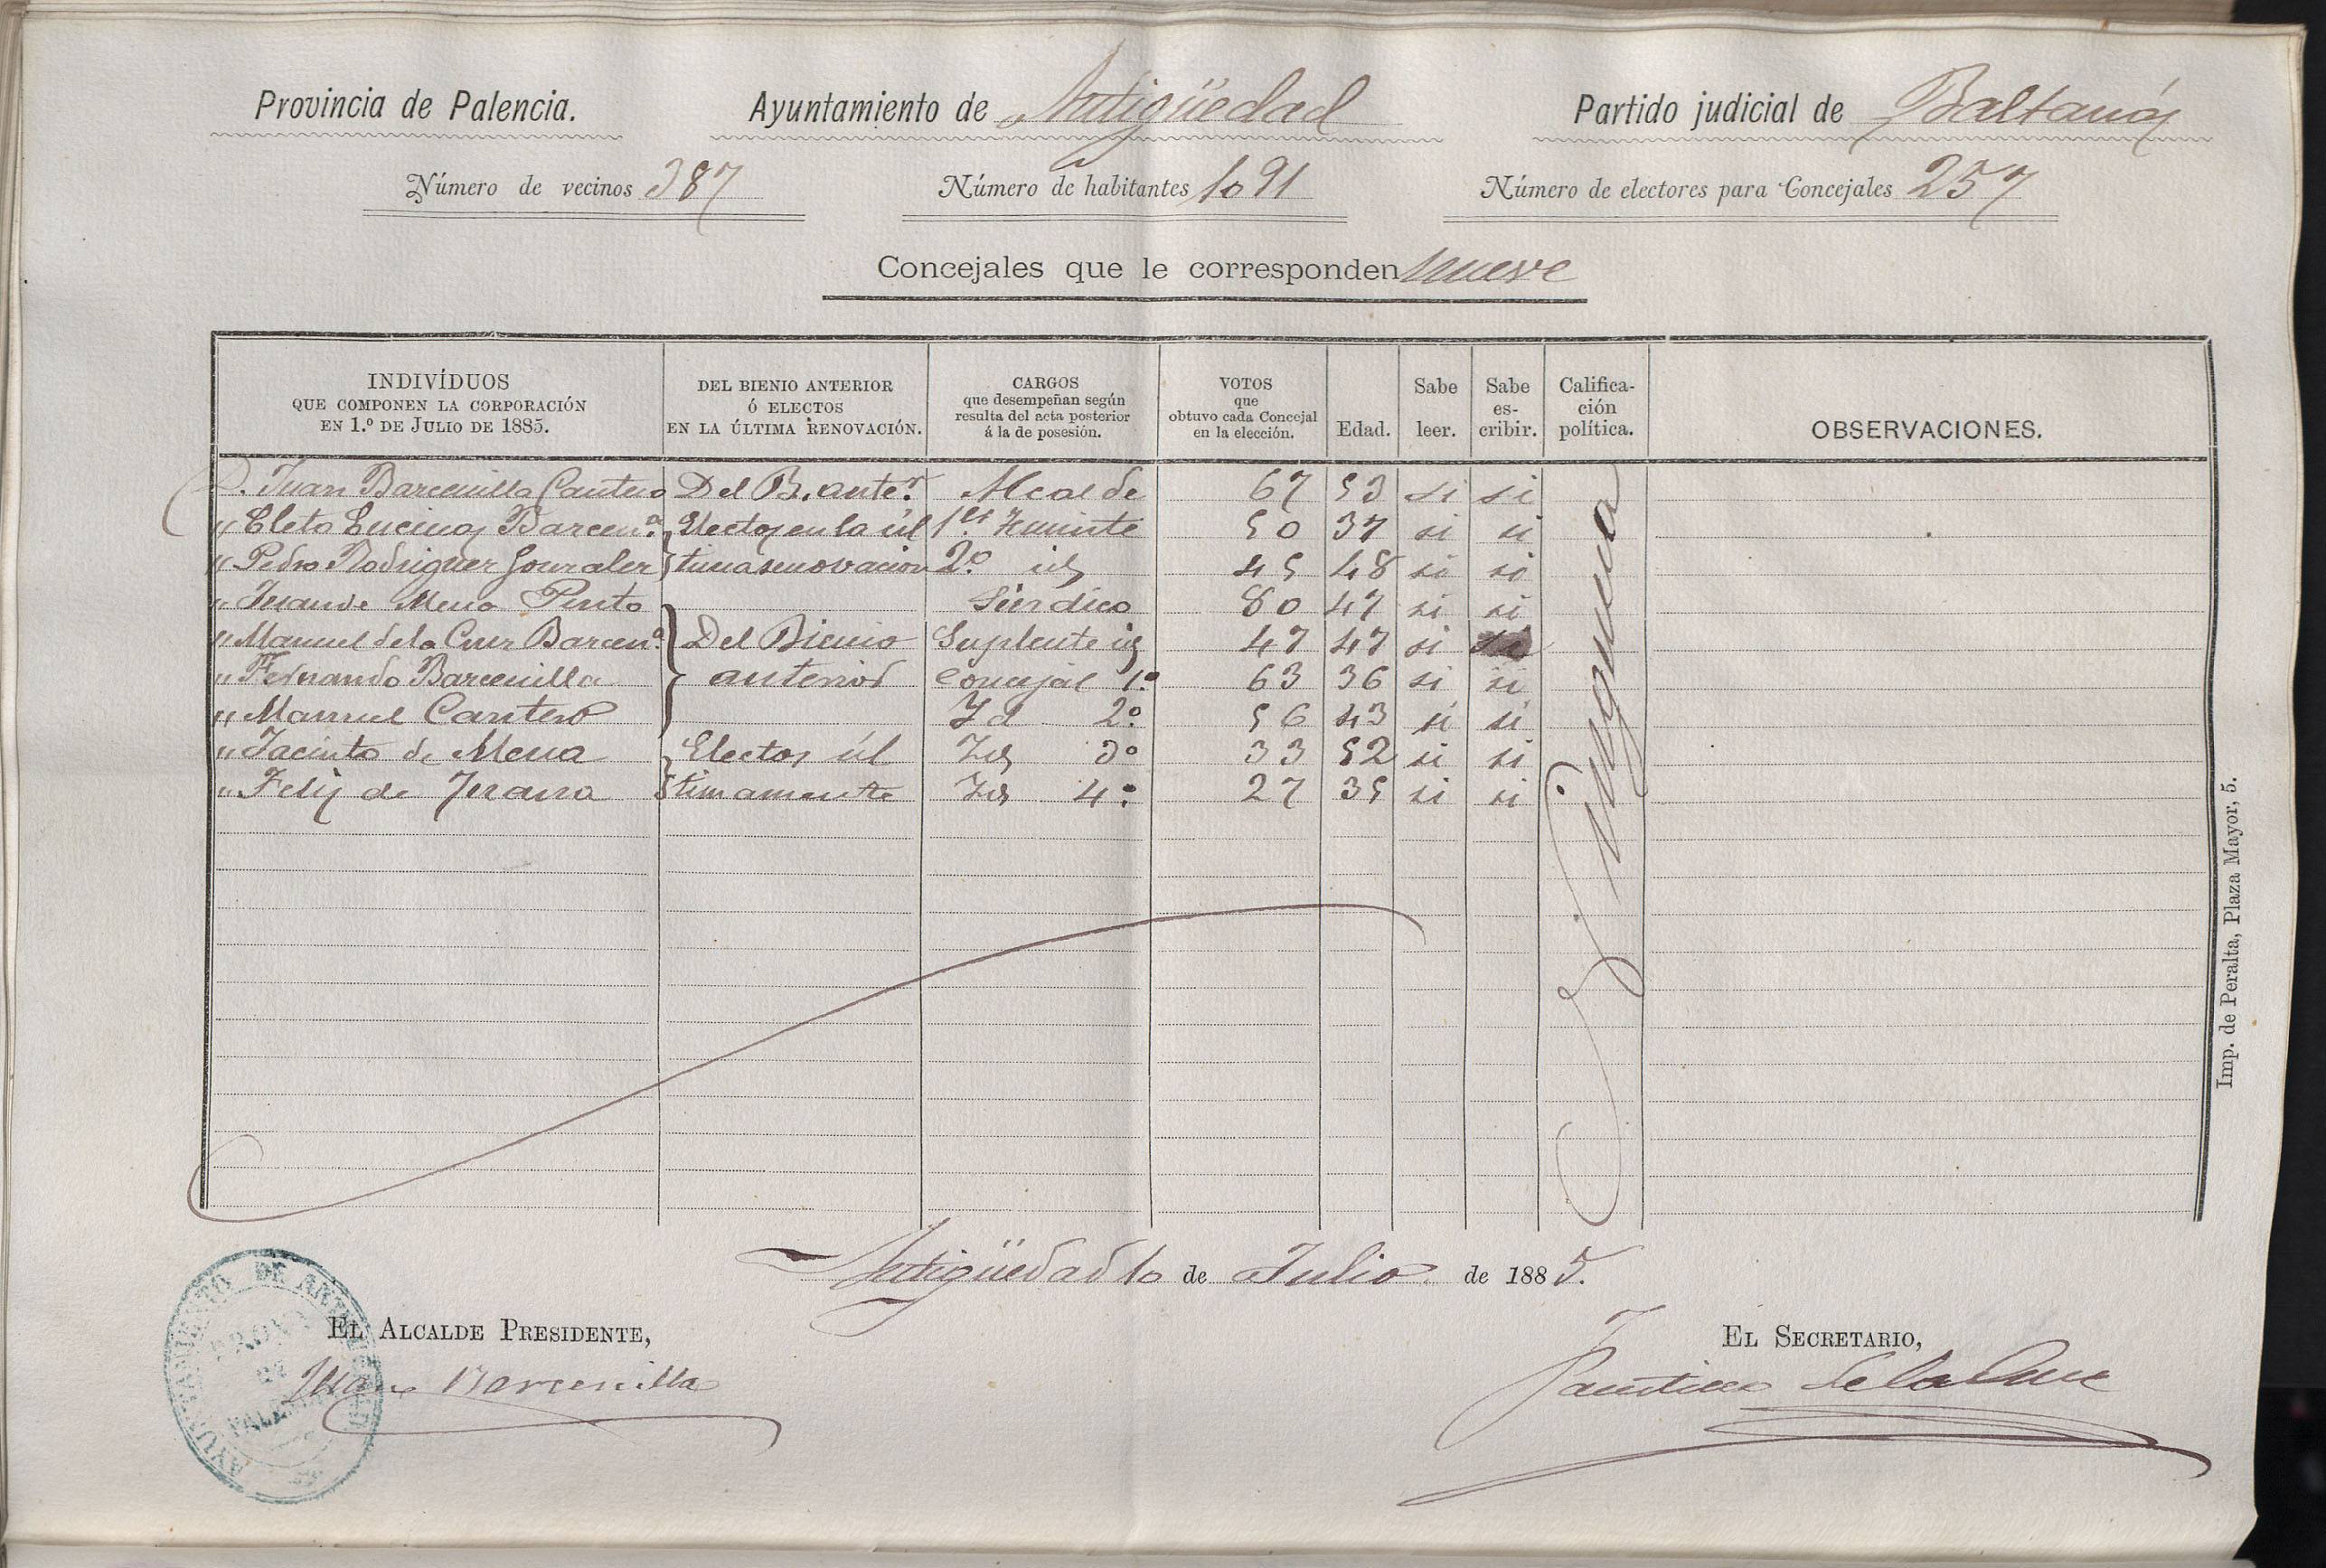 Provincia de Palencia. Ayuntamiento de Antigüedad Partido judicial de Baltanás
Número de vecinos 387 Número de habitantes 1091 Número de electores para Concejales 257
Concejales que le corresponden nueve
INDIVÍDUOS QUE COMPONEN LA CORPORACIÓN EN 1.º DE JULIO DE 1885. DEL BIENIO ANTERIOR Ó ELECTOS EN LA ÚLTIMA RENOVACIÓN. CARGOS que desempeñan según resulta del acta posterior á la de posesión. VOTOS que obtuvo cada Concejal en la elección. Edad. Sabe leer. Sabe escribir. Calificación política. OBSERVACIONES.
D. Juan Barcenilla Cantero Del B. ante.r Alcalde 67 53 si si
" Cleto Encinas Barcen.a Electos en la úl 1.er Teniente 50 37 si si
" Pedro Rodriguez Gonzalez tima renovacion 2.º id 45 48 si si
" Juan de Mena Pinto Síndico 80 47 si si
" Manuel de la Cruz Barcen.a Del Bienio Suplente id 47 47 si si
" Fernando Barcenilla anterior Concejal 1.º 63 36 si si
" Manuel Cantero Id 2.º 56 43 si si
" Jacinto de Mena Electos úl Id 3º 33 52 si si
" Felix de Juana timamente Id 4.º 27 35 si si
Ninguna
Antigüedad 10 de Julio de 1885.
EL ALCALDE PRESIDENTE, EL SECRETARIO,
Juan Barcenilla Faustino de la Cruz
AYUNTAMIENTO DE ANTIGÜEDAD
PROV.A
DE
PALENCIA
Imp. de Peralta, Plaza Mayor, 5.